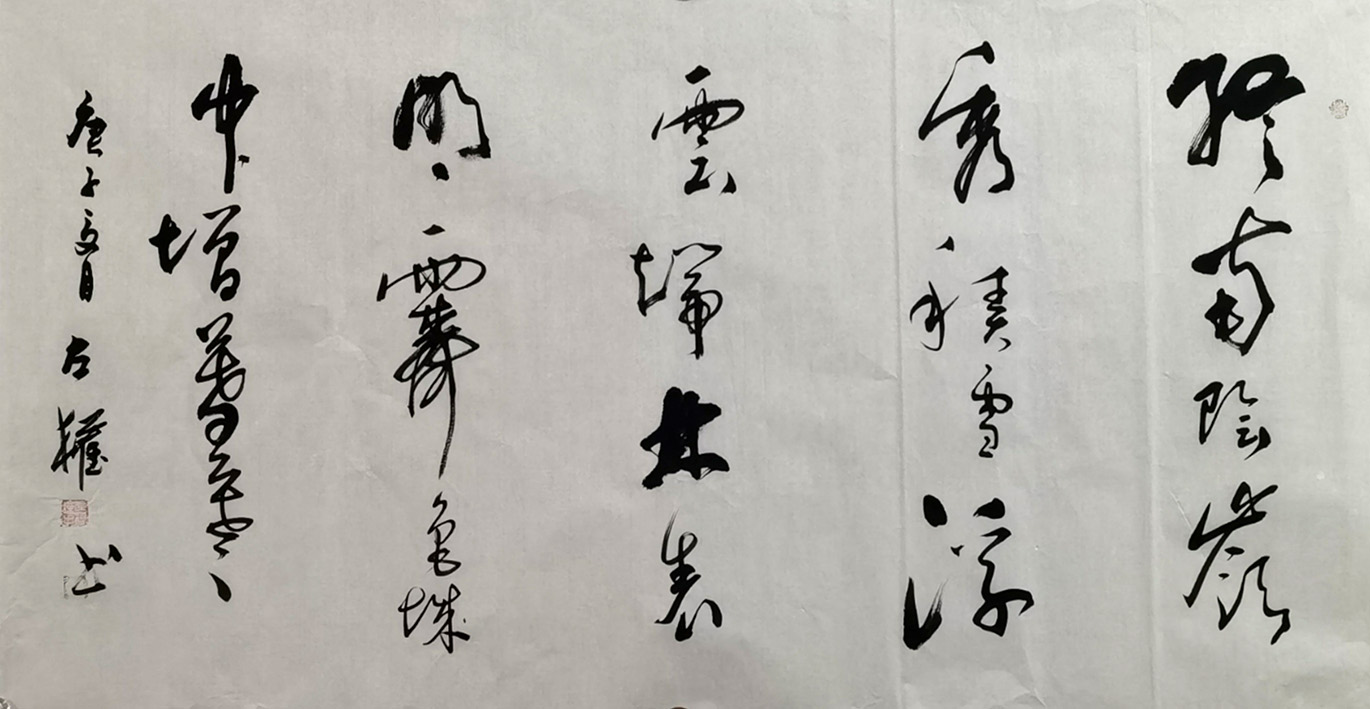 終南陰嶺
秀積雪浮
雲端林表
明霽色城
中增暮寒
庚子夏月 书